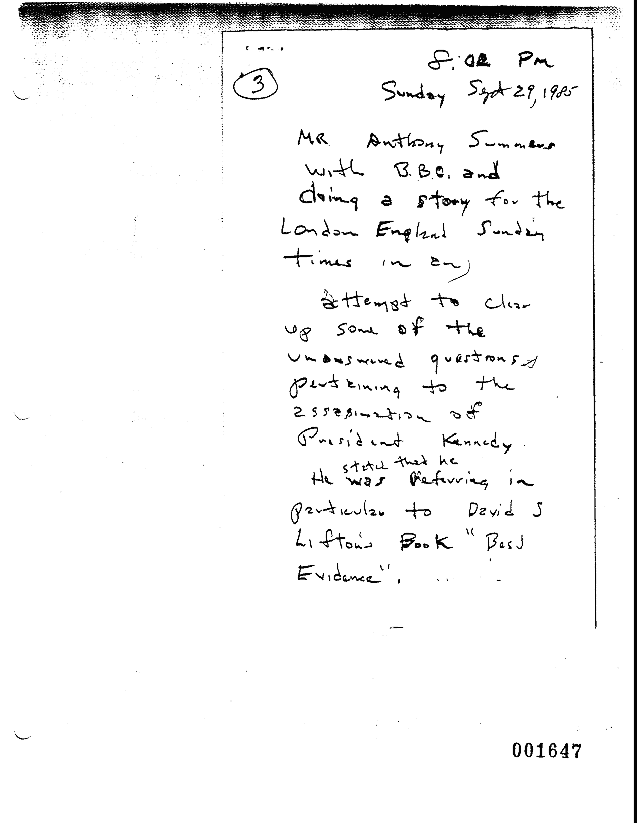 8:02 PM
3
Sunday Sept 29, 1985
MR Anthony Summers
with B.B.C. and
doing a story for the
London England Sunday
times in an
attempt to clear
up some of the
unanswered questions
pertaining to the
assasination of
President Kennedy.
stated that he
He was Referring in
particular to David S
Lifton's Book "Best
Evidence".
001647